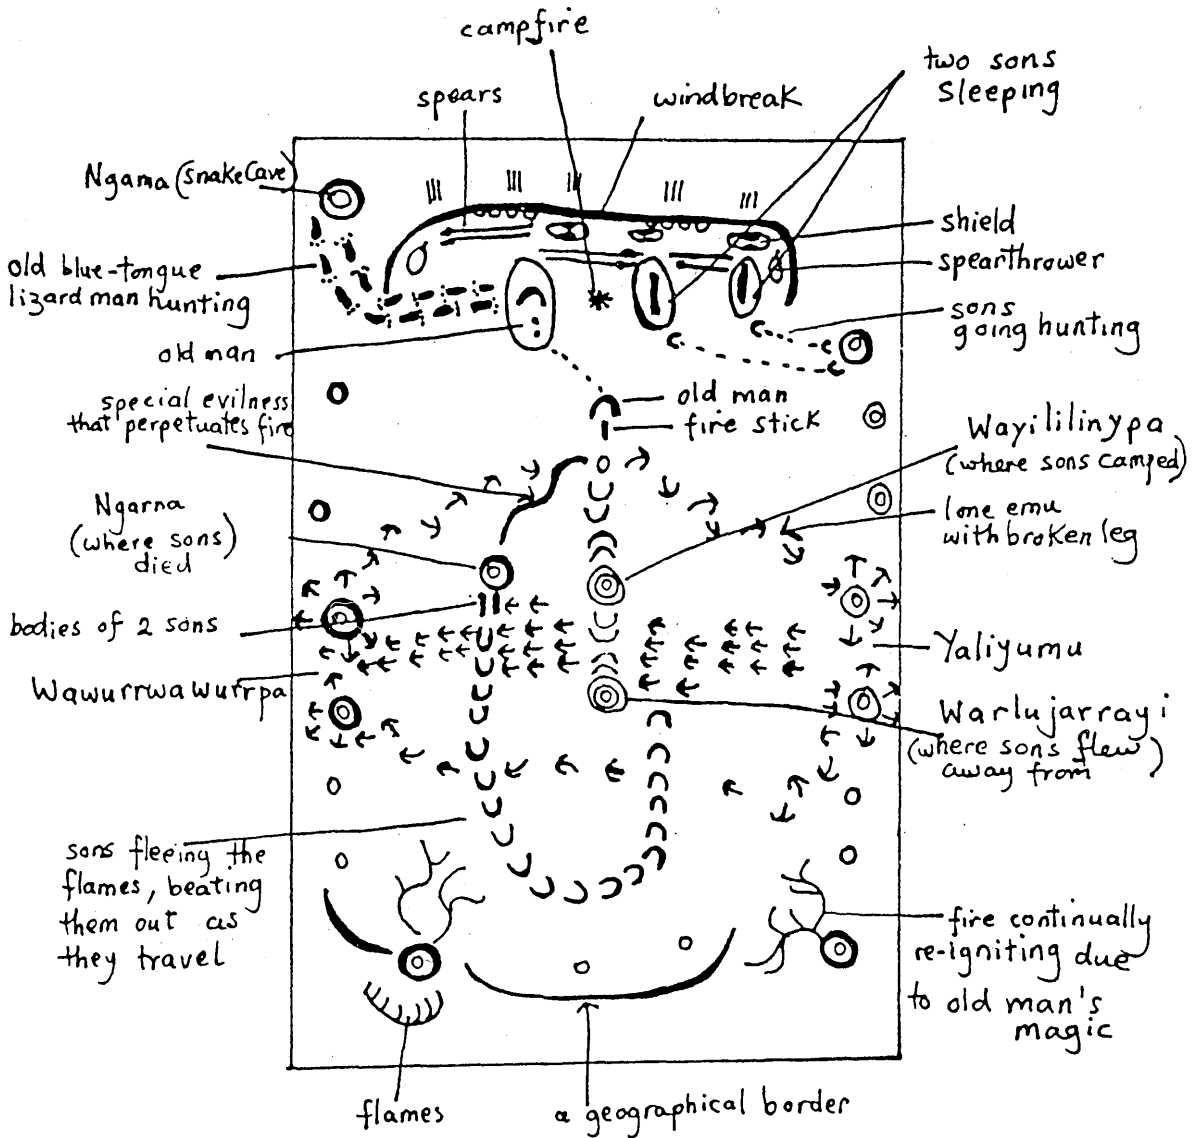 campfire
spears
windbreak
two sons
sleeping
Ngama (snake cave)
shield
spearthrower
old blue-tongue
lizard man hunting
sons
going hunting
old man
special evilness
that perpetuates fire
old man
fire stick
Wayililinypa
(where sons camped)
Ngarna
(where sons)
died
lone emu
with broken leg
bodies of 2 sons
Yaliyumu
Wawurrwawurrpa
Warlujarrayi
(where sons flew)
away from
sons fleeing the
flames, beating
them out as
they travel
fire continually
re-igniting due
to old man's
magic
flames
a geographical border